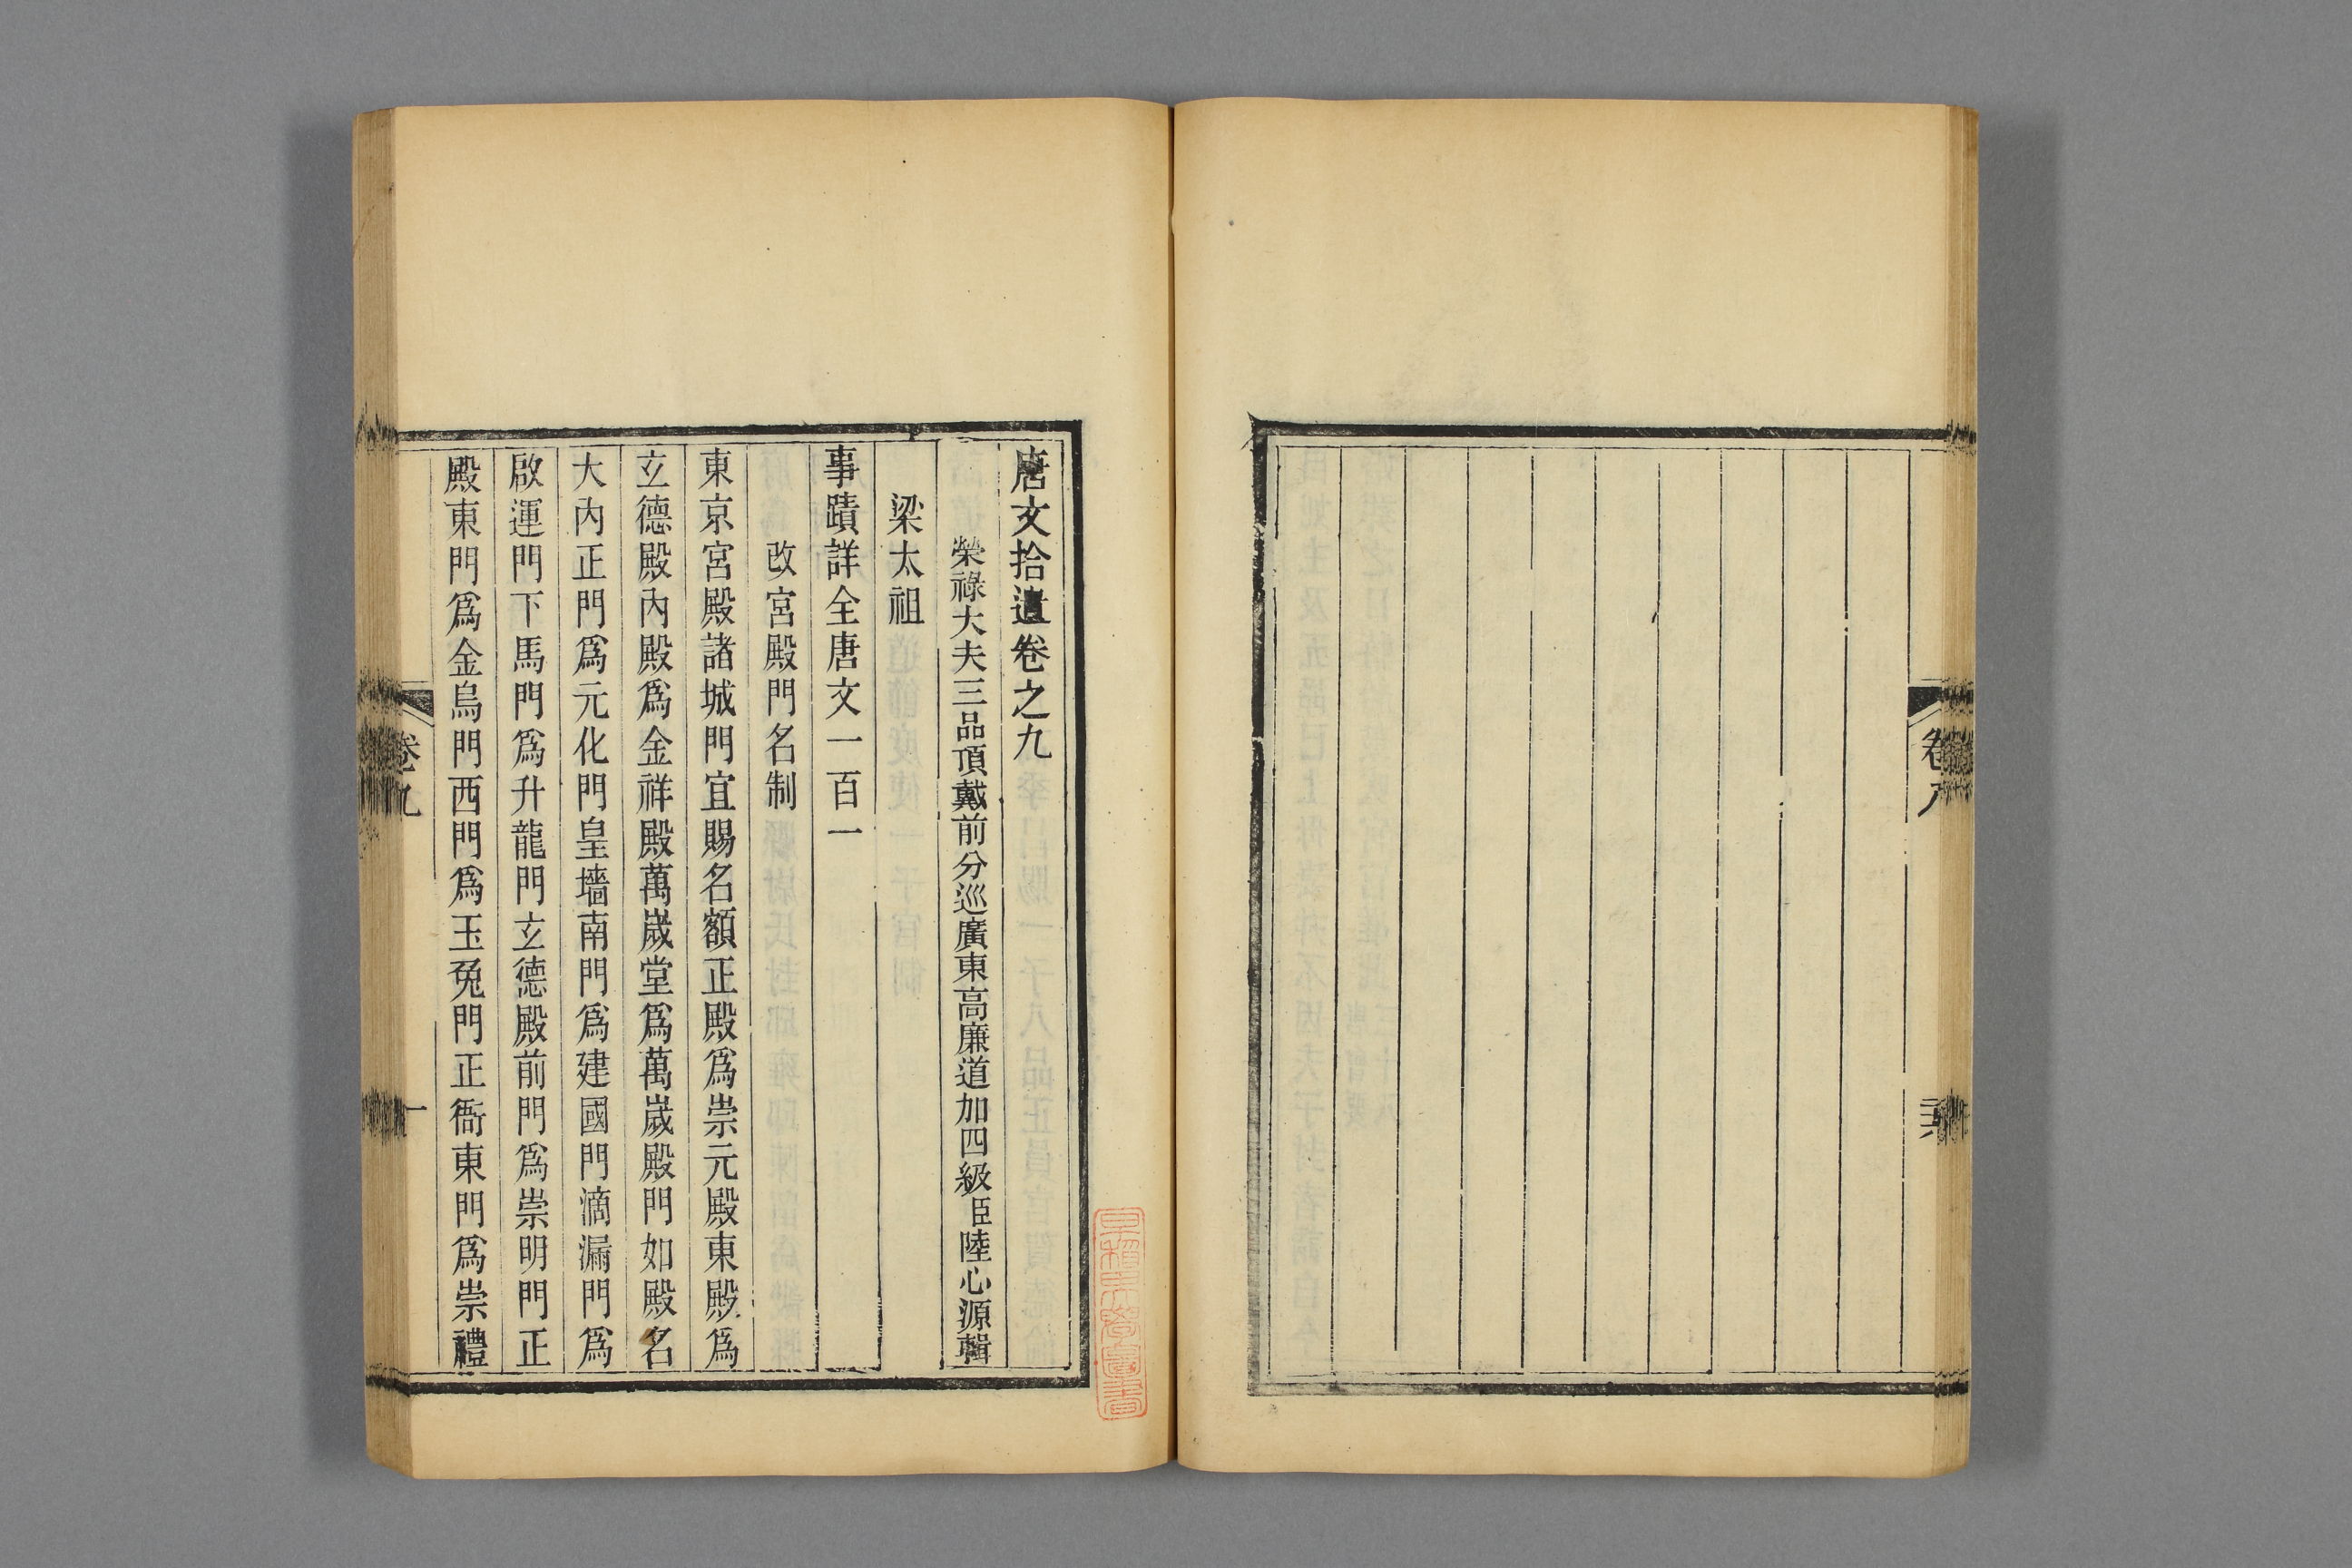 卷八
唐文拾遺卷之九
榮祿大夫三品頂戴前分巡廣東高廉道加四級臣陸心源輯
梁太祖
事蹟詳全唐文一百一
改宮殿門名制
東京宮殿諸城門宜賜名額正殿爲崇元殿東殿爲
玄德殿內殿爲金祥殿萬歲堂爲萬歲殿門如殿名
大內正門爲元化門皇墻南門爲建國門滴漏門爲
啟運門下馬門爲升龍門玄德殿前門爲崇明門正
殿東門爲金烏門西門爲玉兔門正衙東門爲崇禮
卷九
一